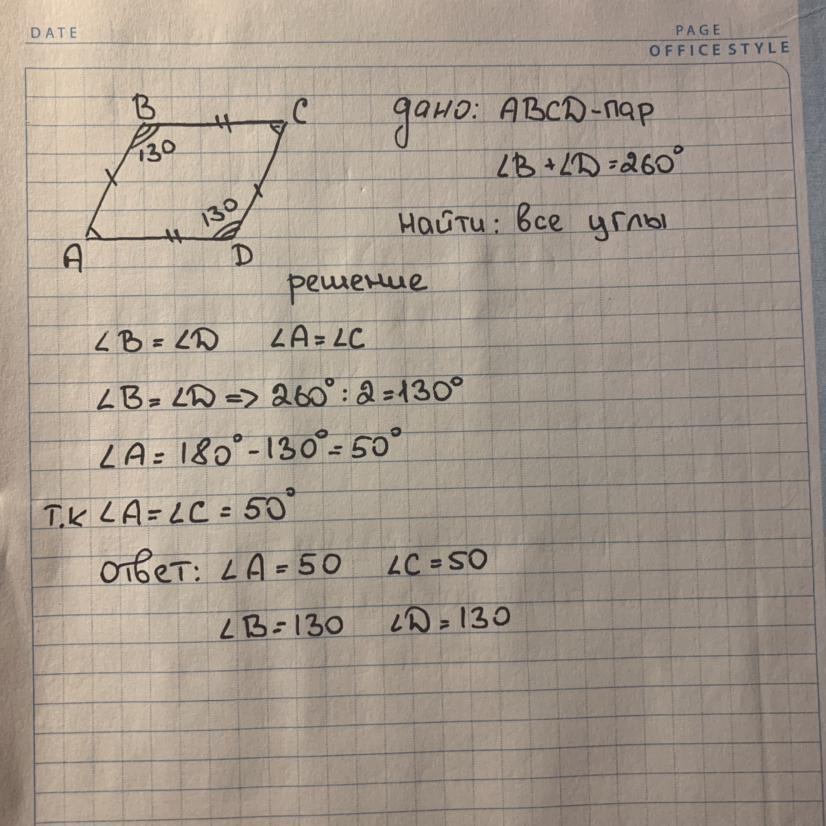 DATE
PAGE
OFFICE STYLE
B
C
130
130
A
D
дано: ABCD-пар
∠B + ∠D = 260°
Найти: все углы
решение
∠B = ∠D ∠A = ∠C
∠B = ∠D => 260° : 2 = 130°
∠A = 180° - 130° = 50°
т.к ∠A = ∠C = 50°
Ответ: ∠A = 50 ∠C = 50
∠B = 130 ∠D = 130